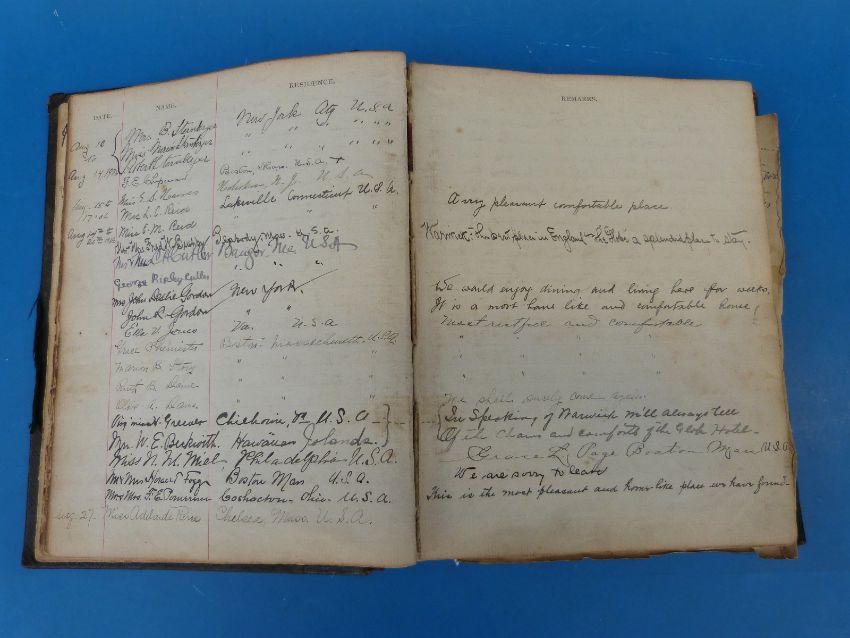 DATE. NAME. RESIDENCE.
Aug 10 Mrs. B. New York City U.S.A
Miss " " " " "
Aug 14 " " " " "
Boston, U.S.A.
Aug. 15th Miss E. S. Hoboken, N.J. U.S.A
17. Miss L. E. Reid Lakeville, Connecticut U.S.A.
Aug Miss E. M. Reid " " "
Mr & Mrs. Peabody, Mass. U.S.A.
Mr & Mrs C A Cutler Bangor, Me. U.S.A
George Ripley Cutler " " "
Mrs John Gordon New York.
John R. Gordon
Ella V. Jones Va. U.S.a
Grace Boston Massachusetts, U.S.A.
Marion B. " " "
Ruth B. " " "
" " "
Virginia Greever Chilhowie, Va U.S.A
Mrs. W. E. Beckwith Hawaiian Islands.
Miss N. M. Philadelphia U.S.A.
Mr & Mrs Horace Fogg Boston Mass U.S.A.
Mr & Mrs. F. E. Coshocton, Ohio. U.S.A.
Aug. 27- Miss Adelaide Chelsea, Mass. U.S.A.
REMARKS.
A very pleasant comfortable place
Warwick: in England - The Globe a splendid place to stay.
We would enjoy dining and living here for weeks.
It is a most home like and comfortable house!
Most restful and comfortable
" " "
" " "
We shall surely come again.
In Speaking of Warwick will always tell
Of the Charm and comforts of the Globe Hotel-
Grace L. Page Boston Mass U.S.A
We are sorry to leave
This is the most pleasant and home-like place we have found-